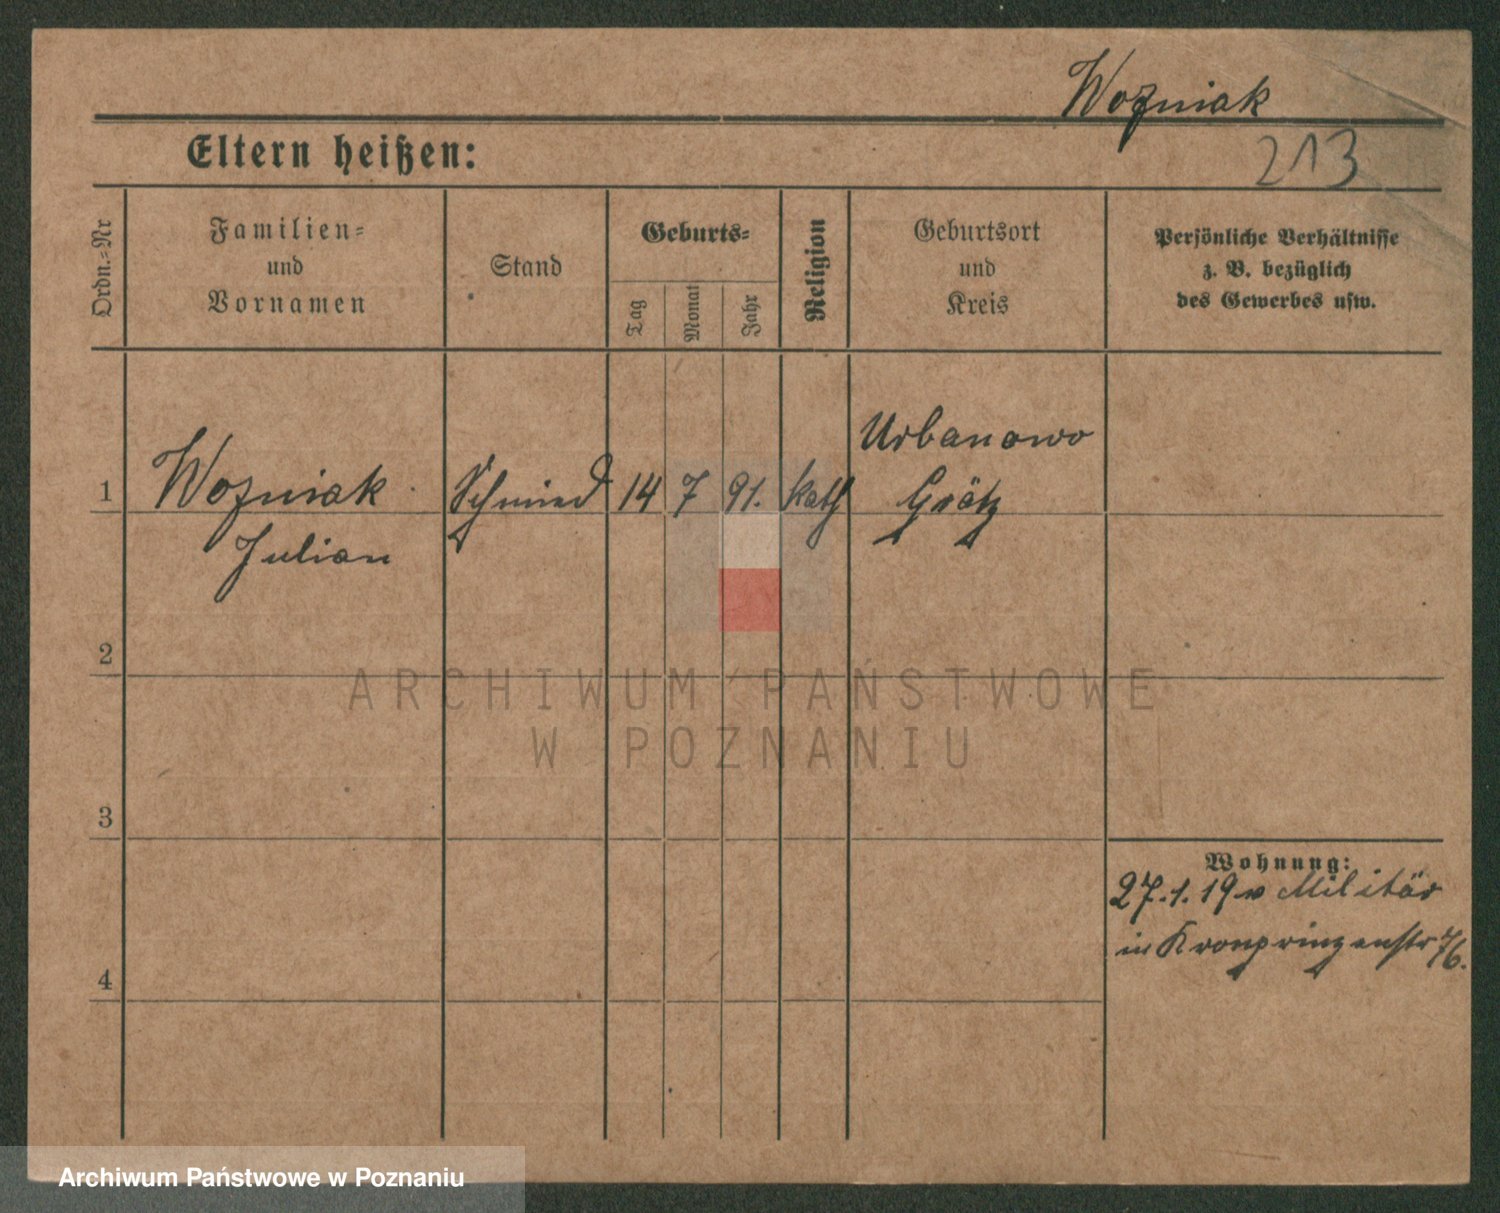 Wozniak
213
Eltern heißen:
Ordn.=Nr
Familien=
und
Vornamen
Stand
Geburts=
Tag
Monat
Jahr
Religion
Geburtsort
und
Kreis
Persönliche Verhältnisse
z. B. bezüglich
des Gewerbes usw.
1
Wozniak
Julian
Schmied
14
7
91.
kath
Urbanowo
Grätz
2
3
4
Wohnung:
27.1.19 v Militär
in Kronprinzenstr 76.
ARCHIWUM PAŃSTWOWE
W POZNANIU
Archiwum Państwowe w Poznaniu